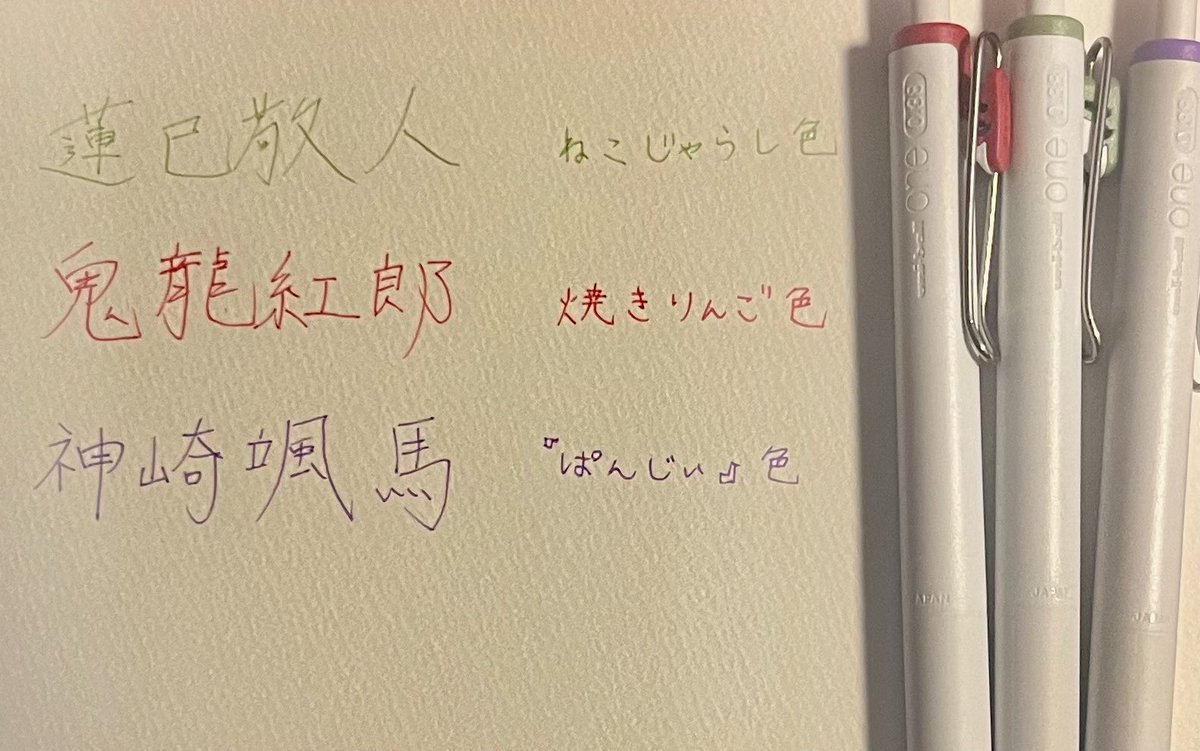 蓮巳敬人 ねこじゃらし色
鬼龍紅郎 焼きりんご色
神崎颯馬 『ぱんじぃ♪色
uni-ball one 0.38
uni-ball one 0.38
uni-ball one 0.38
JAPAN
JAPAN
JAPAN